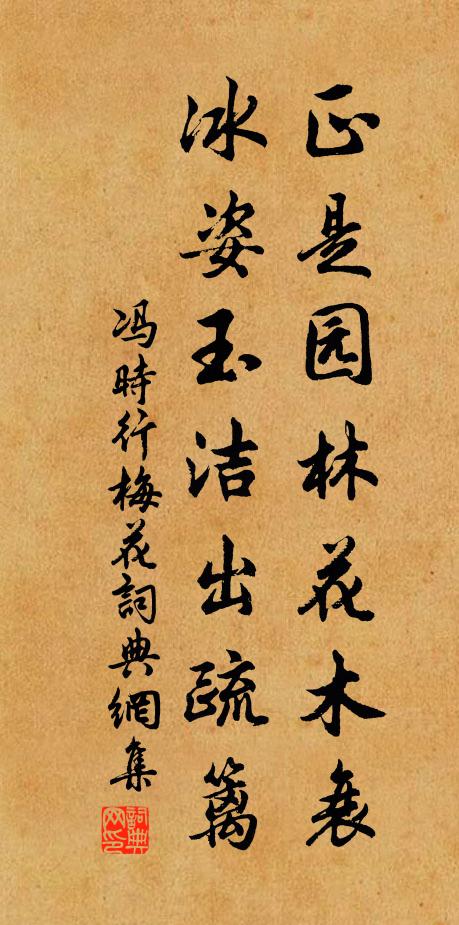 正是园林花木衰
冰姿玉洁出疏篱
冯時行梅花詞典網集
詞典网印